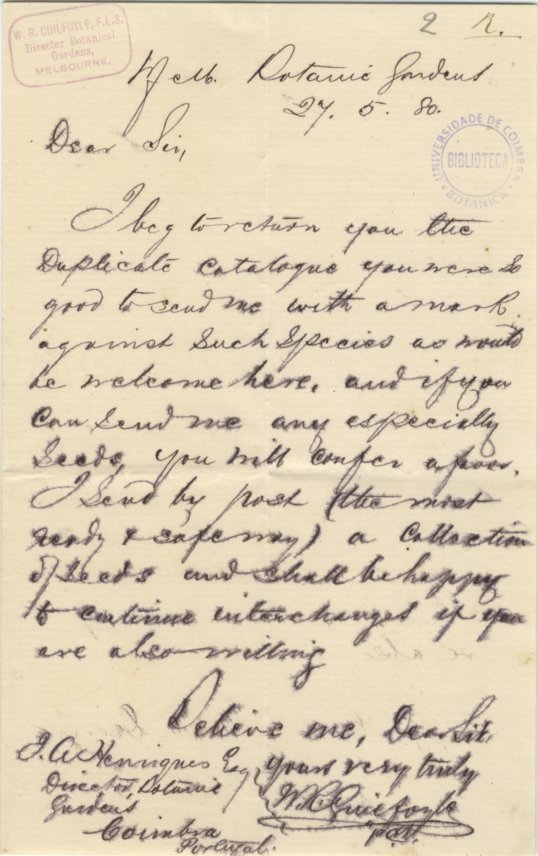 W. R. GUILFOYLE, F.L.S.
Director Botanical
Gardens,
MELBOURNE,
2 R.
Botanic Gardens
27. 5. 80.
UNIVERSIDADE DE COIMBRA
BIBLIOTECA
BOTANICA
Dear Sir,
I beg to return you the
Duplicate Catalogue you were so
good to send me with a mark
against such species as would
be welcome here, and if you
can send me any especially
Seeds, you will confer a favor.
I send by post (the most
ready & safe way) a Collection
of Seeds and shall be happy
to continue interchanges if you
are also willing
Believe me, Dear Sir,
yours very truly
J. A. Henriques Esq,
W. R. Guilfoyle
Director, Botanic
Gardens
Coimbra
Portugal.